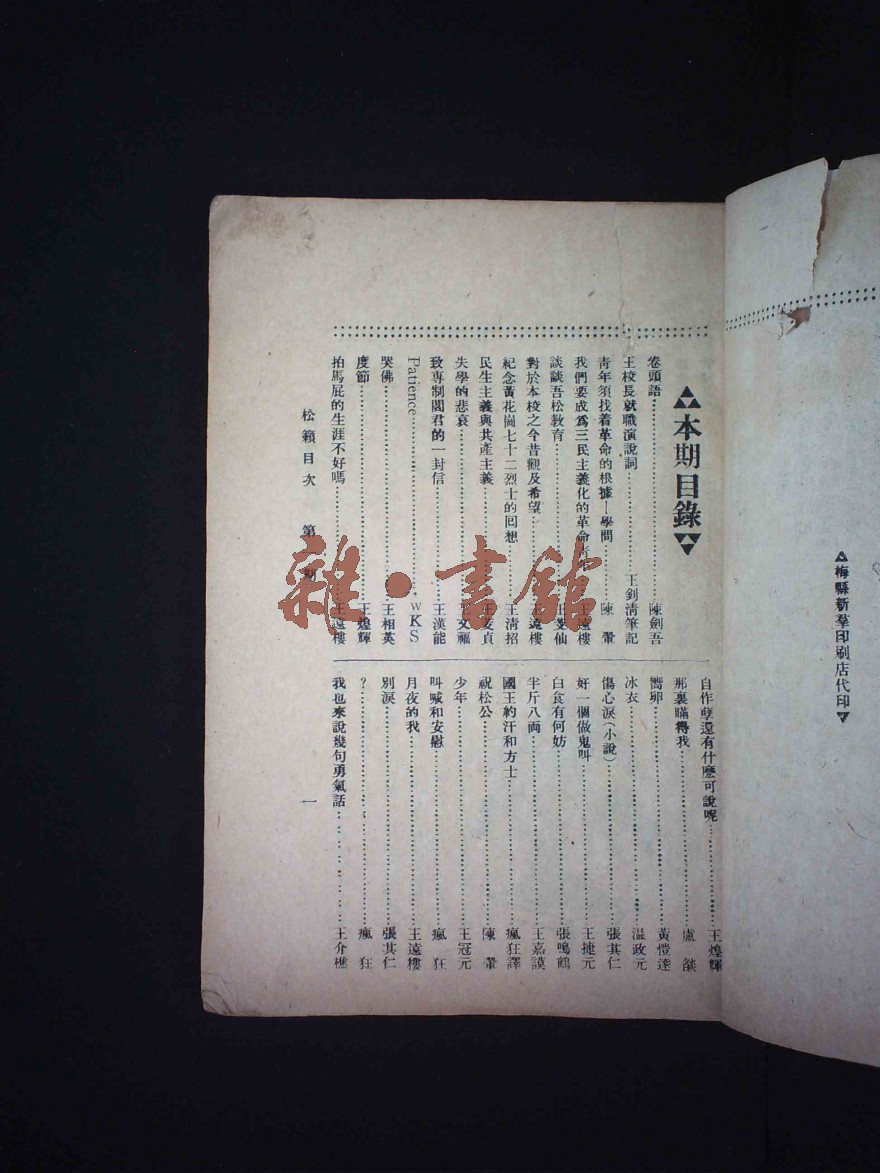 △梅縣新羣印刷店代印▽
▲本期目錄▼
卷頭語 陳劍吾
王校長就職演說詞 王釗清筆記
靑年須找着革命的根據—學問 陳羣
我們要成爲三民主義化的革命靑年 王遠樓
談談吾松敎育 王菱仙
對於本校之今昔觀及希望 王遠樓
紀念黃花崗七十二烈士的囘想 王淸招
民生主義與共產主義 王菱貞
失學的悲哀 王文福
致專制閻君的一封信 王漢能
Patience WKS
哭佛 王相英
度節 王煌輝
拍馬屁的生涯不好嗎 王遠樓
自作孽還有什麽可說呢 王煌輝
那裏瞞得我 盧燚
嚮卵 黃愷達
冰衣 溫政元
傷心淚(小說) 張其仁
好一個做鬼叫 王捷元
白食有何妨 張鳴鶴
半斤八両 王嘉謨
國王約汗和方士 瘋狂譯
祝松公 陳羣
少年 王冠元
叫喊和安慰 瘋狂
月夜的我 王遠樓
別淚 張其仁
? 瘋狂
我也來說幾句勇氣話 王介樵
松籟目次 第 期 一
雜·書館